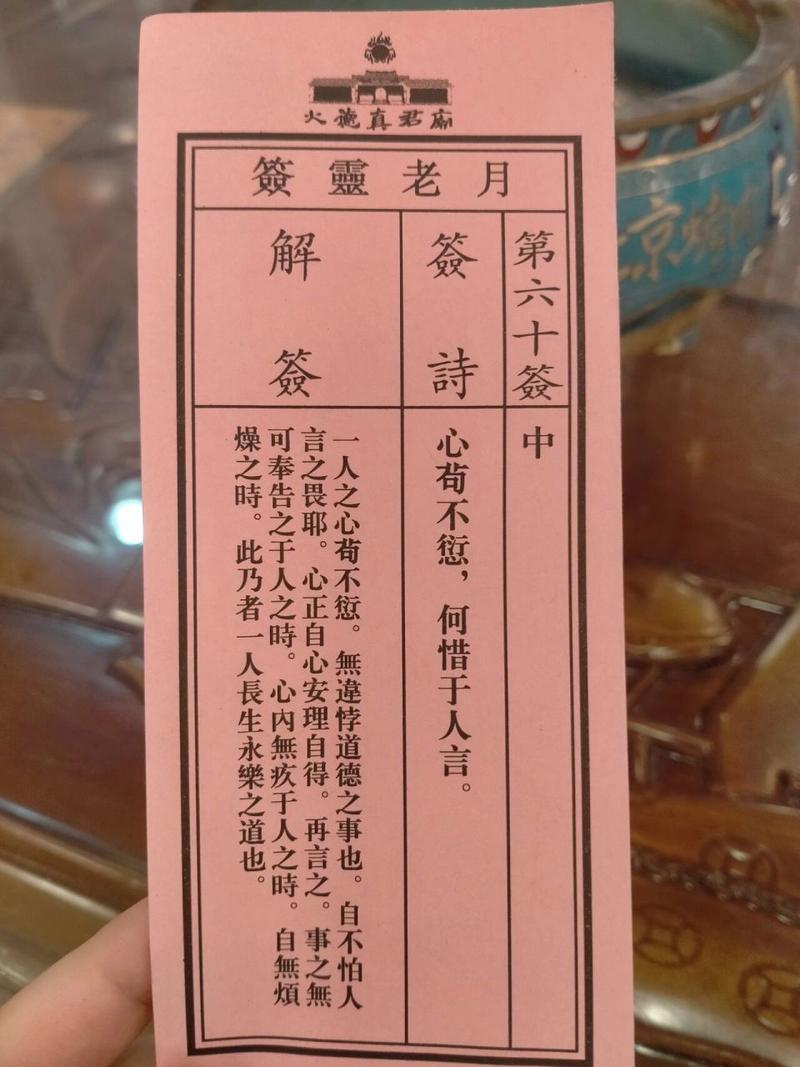 火德真君廟
月老靈簽
第六十簽
中
簽詩
心苟不愆，何惜于人言。
解簽
一人之心苟不愆。無違悖道德之事也。自不怕人
言之畏耶。心正自心安理自得。再言之。事之無
可奉告之于人之時。心內無疚于人之時。自無煩
燥之時。此乃者一人長生永樂之道也。
京